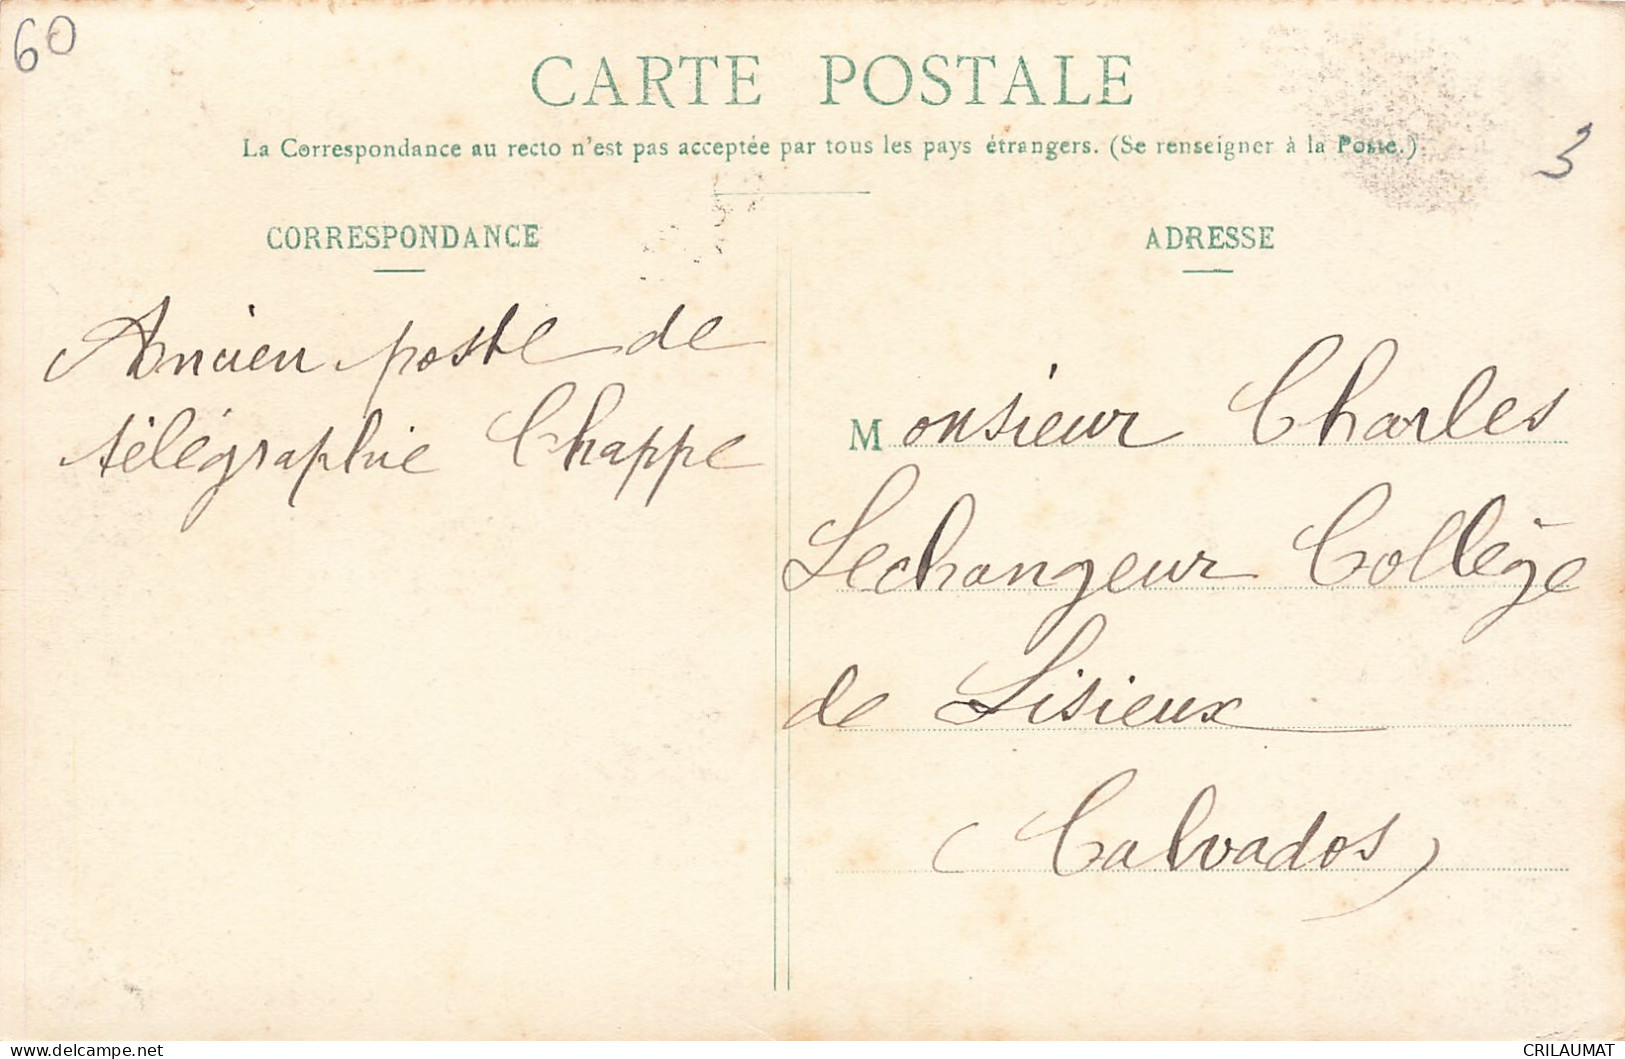 60
CARTE POSTALE
La Correspondance au recto n'est pas acceptée par tous les pays étrangers. (Se renseigner à la Poste.)
3
CORRESPONDANCE
Ancien poste de
télégraphie Chappe
ADRESSE
Monsieur Charles
Lechangeur Collège
de Lisieux
(Calvados)
delcampe.net
CRILAUMAT